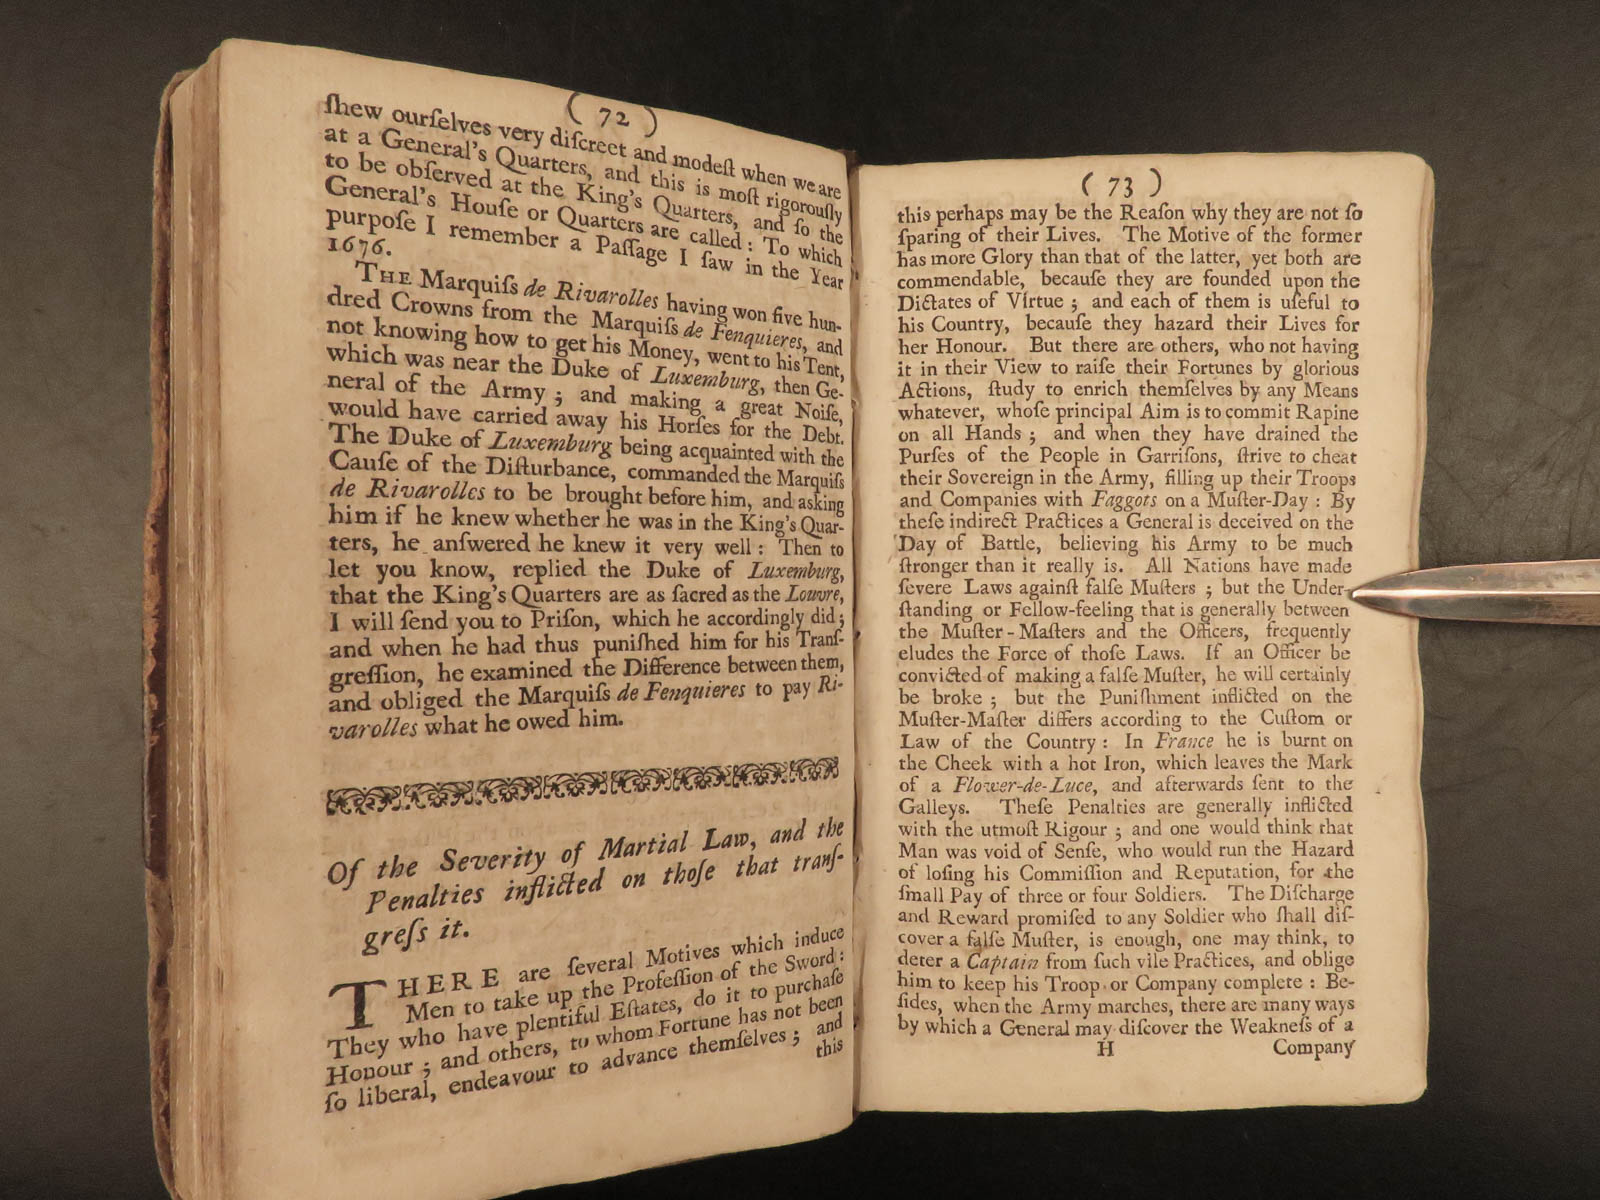 ( 72 )
ſhew ourſelves very diſcreet and modeſt when we are
at a General's Quarters, and this is moſt rigorouſly
to be obſerved at the King's Quarters, and ſo the
General's Houſe or Quarters are called: To which
purpoſe I remember a Paſſage I ſaw in the Year
1676.
THE Marquiſs de Rivarolles having won five hun-
dred Crowns from the Marquiſs de Fenquieres, and
not knowing how to get his Money, went to his Tent,
which was near the Duke of Luxemburg, then Ge-
neral of the Army; and making a great Noiſe,
would have carried away his Horſes for the Debt.
The Duke of Luxemburg being acquainted with the
Cauſe of the Diſturbance, commanded the Marquiſs
de Rivarolles to be brought before him, and asking
him if he knew whether he was in the King's Quar-
ters, he anſwered he knew it very well: Then to
let you know, replied the Duke of Luxemburg,
that the King's Quarters are as ſacred as the Louvre,
I will ſend you to Priſon, which he accordingly did;
and when he had thus puniſhed him for his Tranſ-
greſſion, he examined the Difference between them,
and obliged the Marquiſs de Fenquieres to pay Ri-
varolles what he owed him.
Of the Severity of Martial Law, and the
Penalties inflicted on thoſe that tranſ-
greſs it.
THERE are ſeveral Motives which induce
Men to take up the Profeſſion of the Sword:
They who have plentiful Eſtates, do it to purchaſe
Honour; and others, to whom Fortune has not been
ſo liberal, endeavour to advance themſelves; and
this
( 73 )
this perhaps may be the Reaſon why they are not ſo
ſparing of their Lives. The Motive of the former
has more Glory than that of the latter, yet both are
commendable, becauſe they are founded upon the
Dictates of Virtue; and each of them is uſeful to
his Country, becauſe they hazard their Lives for
her Honour. But there are others, who not having
it in their View to raiſe their Fortunes by glorious
Actions, ſtudy to enrich themſelves by any Means
whatever, whoſe principal Aim is to commit Rapine
on all Hands; and when they have drained the
Purſes of the People in Garriſons, ſtrive to cheat
their Sovereign in the Army, filling up their Troops
and Companies with Faggots on a Muſter-Day: By
theſe indirect Practices a General is deceived on the
Day of Battle, believing his Army to be much
ſtronger than it really is. All Nations have made
ſevere Laws againſt falſe Muſters; but the Under-
ſtanding or Fellow-feeling that is generally between
the Muſter-Maſters and the Officers, frequently
eludes the Force of thoſe Laws. If an Officer be
convicted of making a falſe Muſter, he will certainly
be broke; but the Puniſhment inflicted on the
Muſter-Maſter differs according to the Cuſtom or
Law of the Country: In France he is burnt on
the Cheek with a hot Iron, which leaves the Mark
of a Flower-de-Luce, and afterwards ſent to the
Galleys. Theſe Penalties are generally inflicted
with the utmoſt Rigour; and one would think that
Man was void of Senſe, who would run the Hazard
of loſing his Commiſſion and Reputation, for the
ſmall Pay of three or four Soldiers. The Diſcharge
and Reward promiſed to any Soldier who ſhall diſ-
cover a falſe Muſter, is enough, one may think, to
deter a Captain from ſuch vile Practices, and oblige
him to keep his Troop or Company complete: Be-
ſides, when the Army marches, there are many ways
by which a General may diſcover the Weakneſs of a
H Company